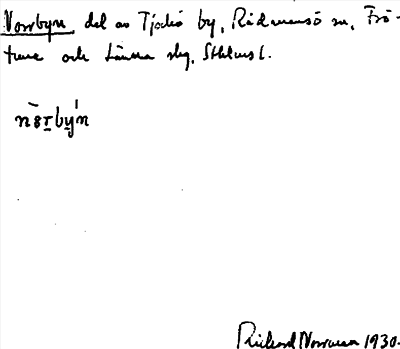 Norrbyn, del av Tjockö by, Rådmansö sn, Frö-
tuna och Länna slg, Sthlms l.
Rickard Norrman 1930.